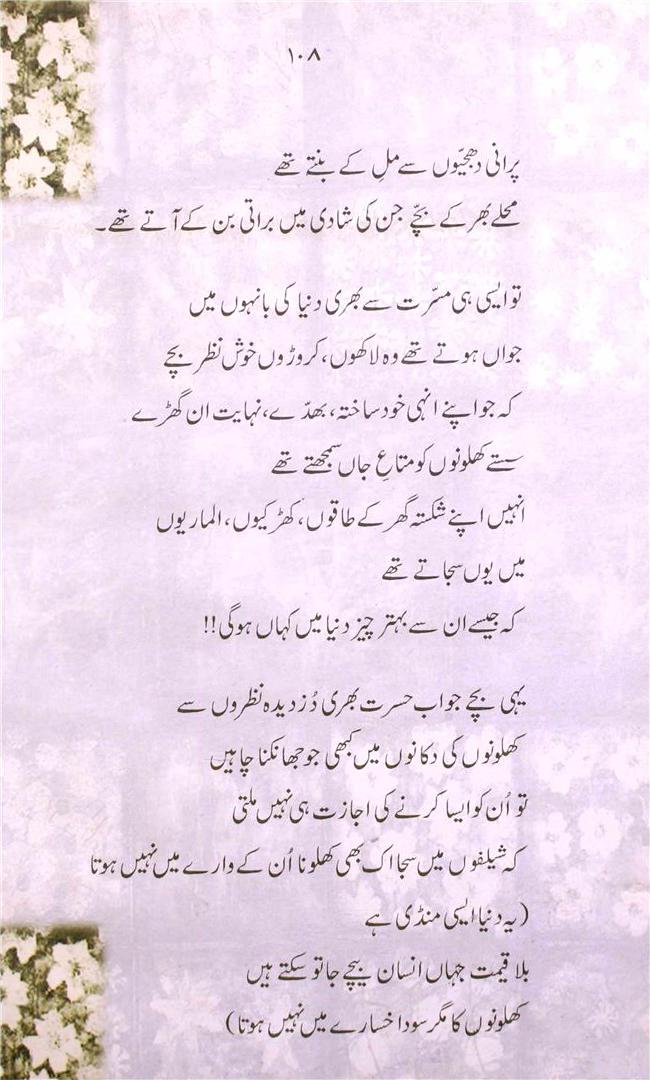 ۱۰۸
پرانی دھجیّوں سے مل کے بنتے تھے
محلے بھر کے بچّے جن کی شادی میں براتی بن کے آتے تھے۔
تو ایسی ہی مسرّت سے بھری دنیا کی بانہوں میں
جواں ہوتے تھے وہ لاکھوں، کروڑوں خوش نظر بچے
کہ جو اپنے انہی خود ساختہ، بھدّے، نہایت ان گھڑے
سستے کھلونوں کو متاعِ جاں سمجھتے تھے
انہیں اپنے شکستہ گھر کے طاقوں، کھڑکیوں، الماریوں
میں یوں سجاتے تھے
کہ جیسے ان سے بہتر چیز دنیا میں کہاں ہوگی!!
یہی بچے جو اب حسرت بھری دُزدیدہ نظروں سے
کھلونوں کی دکانوں میں کبھی جو جھانکنا چاہیں
تو اُن کو ایسا کرنے کی اجازت ہی نہیں ملتی
کہ شیلفوں میں سجا اک بھی کھلونا اُن کے وارے میں نہیں ہوتا
(یہ دنیا ایسی منڈی ہے
بلا قیمت جہاں انسان بیچے جا تو سکتے ہیں
کھلونوں کا مگر سودا خسارے میں نہیں ہوتا)